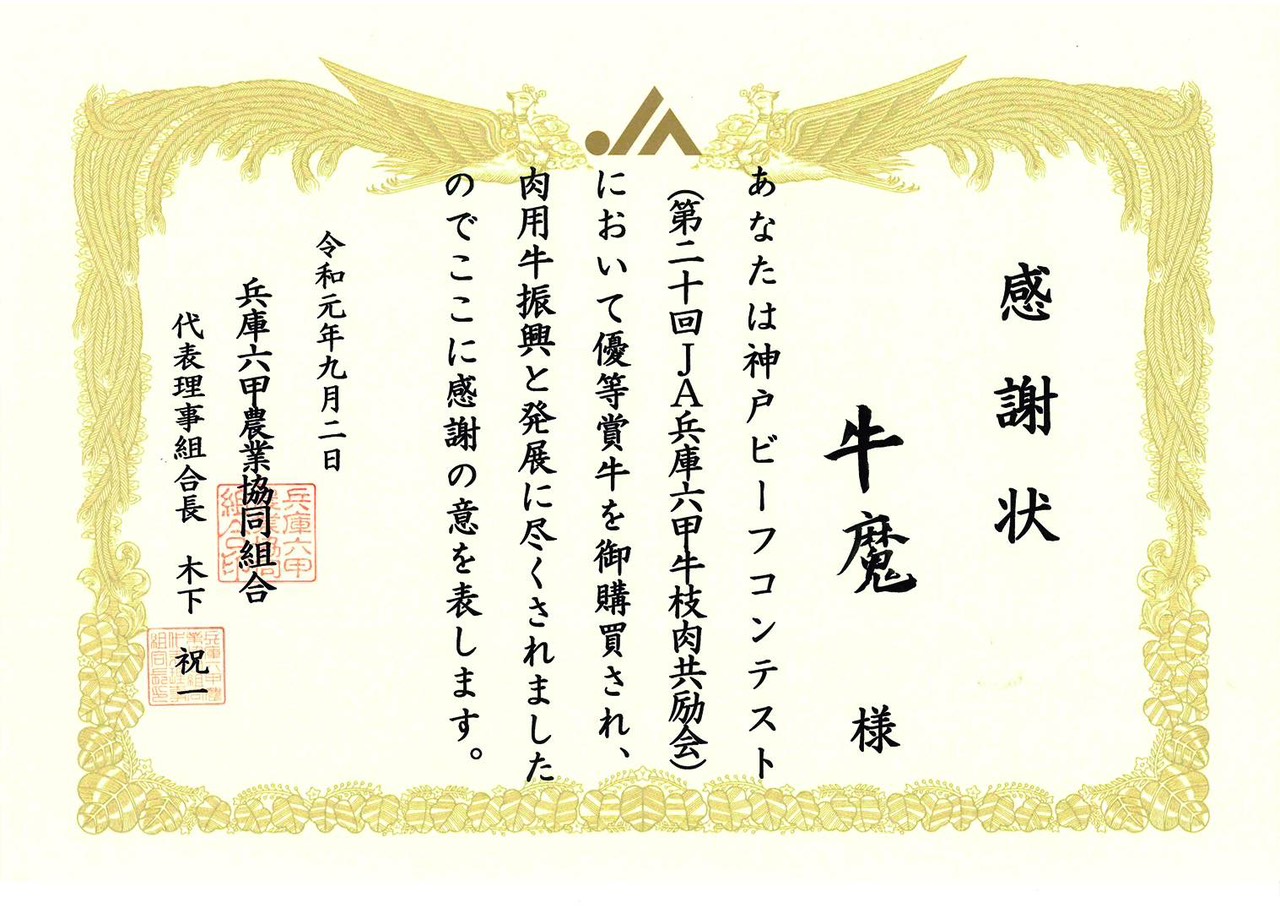 感謝状
牛魔 様
あなたは神戸ビーフコンテスト
(第二十回JA兵庫六甲牛枝肉共励会)
において優等賞牛を御購買され、
肉用牛振興と発展に尽くされました
のでここに感謝の意を表します。
令和元年九月二日
兵庫六甲農業協同組合
代表理事組合長 木下 祝一
JA
兵庫六甲
農業協同
組合印